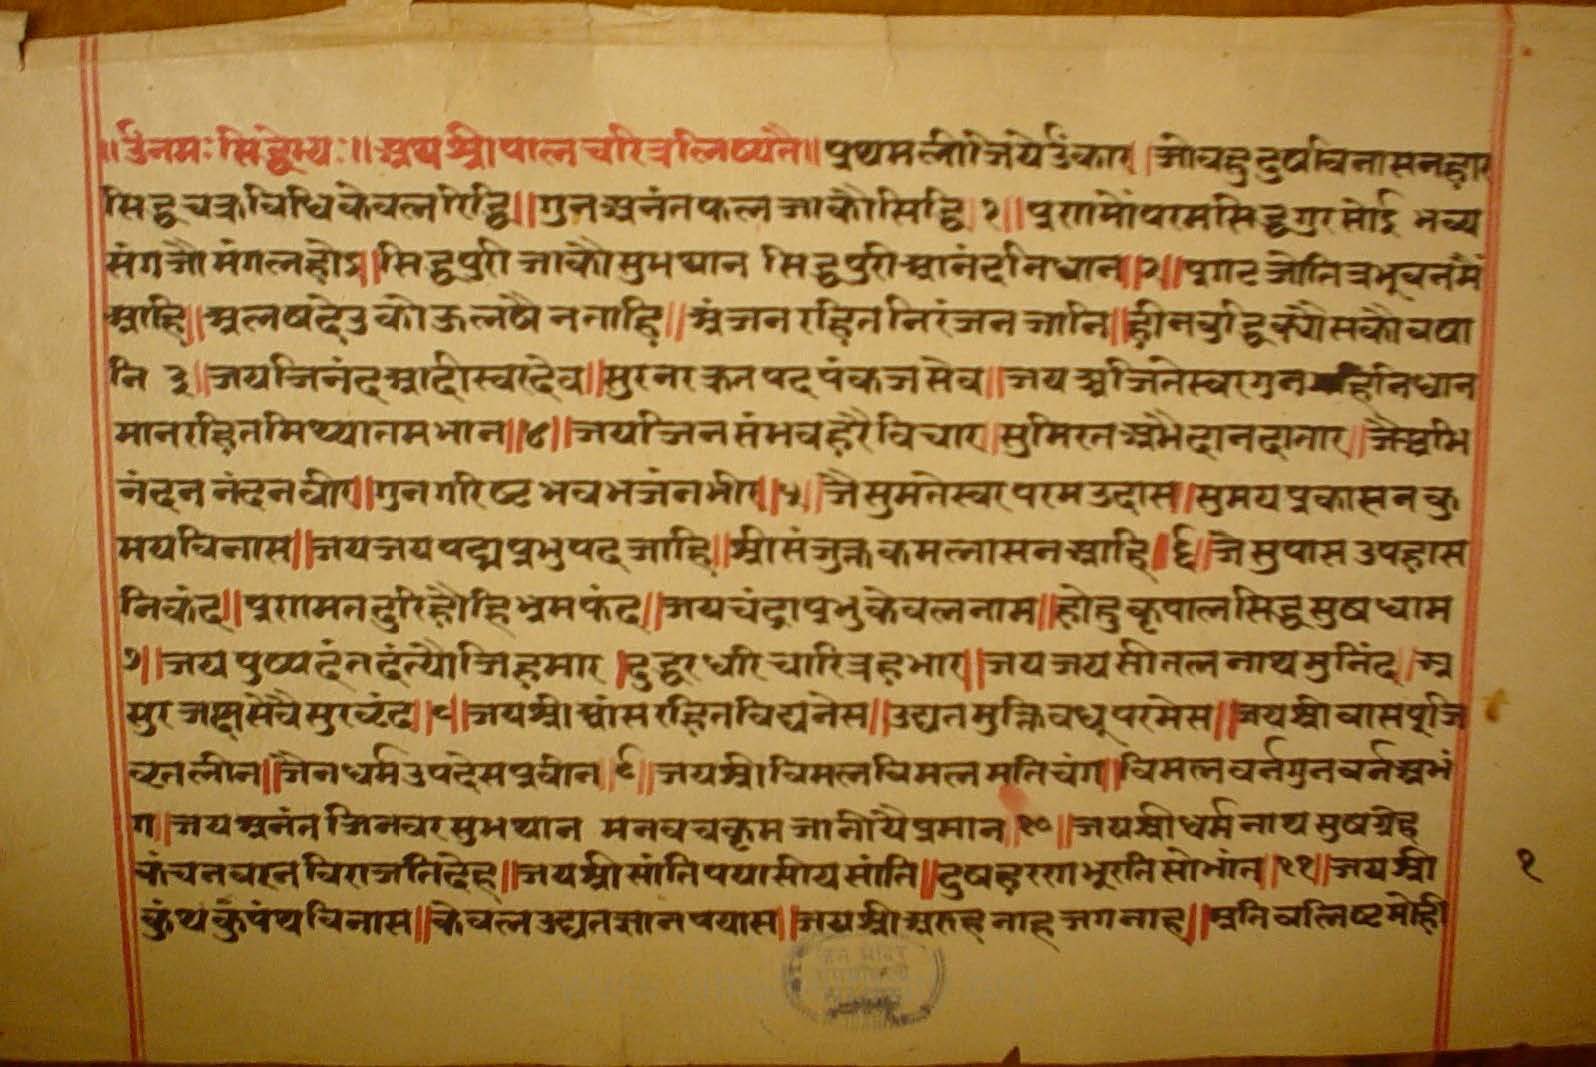 ॥ ॐनमः सिद्धेभ्यः ॥ अथश्रीपालचरित्रलिष्यतै ॥ प्रथमलीजियेउंकार । जोवहुदुषविनासनहार
सिद्धचक्रविधिकेवलरिद्धि ॥ गुनअनंतफलजाकौसिद्धि १ ॥ प्रणमौंपरमसिद्धगुरसोई भव्य
संगजौमंगलहोइ ॥ सिद्धपुरीजाकौसुभथान सिद्धपुरीआनंदनिधान ॥ २ ॥ प्रगटजोतित्रभूवनमैं
आहि ॥ अलषदेउकोऊलषैनताहि ॥ अंजनरहितनिरंजनजानि ॥ हीनवुद्धिक्यौसकौवषा
नि ३ ॥ जयजिनंदआदीस्वरदेव ॥ सुरनरक्रतपदपंकजसेव ॥ जयअजितेस्वरगुन हिनिधान
मानरहितमिथ्यातमभान ॥ ४ ॥ जयजिनसंभवहरैविचार ॥ सुमिरतअभैदानदातार ॥ जैअभि
नंदननंदनवीर ॥ गुनगरिष्टभवभजंनभीर ॥ ५ ॥ जैसुमतेस्वरपरमउदास ॥ सुमयप्रकासनकु
मयविनास ॥ जयजयपद्मप्रभुपदजाहि ॥ श्रीसंजुक्तकमलासनआहि ॥ ६ ॥ जैसुपासउपहास
निकंद ॥ प्रणमतदुरिहौहिभ्रमफंद ॥ जयचंद्राप्रभुकेवलनाम ॥ होहुकृपालसिद्धसुषधाम
७ ॥ जयपुष्पदंतदंत्यौजिहमार । दुद्धरधरिचारित्रहभार ॥ जयजयसीतलनाथमुनिंद ॥ अ
सुरजक्षसेवैसुरव्रंद ॥ ८ ॥ जयश्रीश्रांसरहितविद्यनेस ॥ उद्यतमुक्तिवधूपरमेस ॥ जयश्रीवासपूजि
व्रतलीन ॥ जैनधर्मउपदेसप्रवीन ॥ ९ ॥ जयश्रीविमलविमलमतिचंग ॥ विमलवर्नगुनवर्नअभं
ग ॥ जयअनंतजिनवरसुभथान मनवचक्रमजानीयैप्रमान ॥ १० ॥ जयश्रीधर्मनाथसुषग्रेह
कंचनवरनविराजतिदेह ॥ जयश्रीसांतिपयासीयसांति ॥ दुषहरणभूरतिसोभांत ॥ ११ ॥ जयश्री
कुंथकुंपंथविनास ॥ केवलउद्यतज्ञानपयास ॥ जयश्रीअरहनाहजगनाह ॥ अतिवलिष्टमोही
१